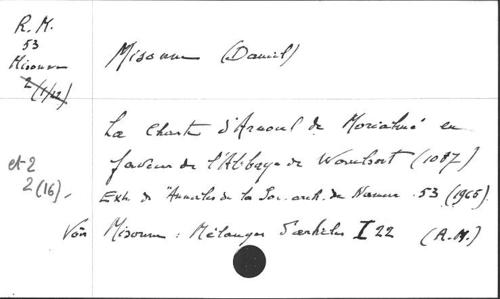 R. M.
53
Misonne
2 (1/22)
Misonne (Daniel)
La Charte d'Arnoul de Morialmé en
faveur de l'Abbaye de Waulsort (1087)
et 2
2 (16)
Extr. de "Annales de la Soc. arch. de Namur. 53 (1965)
Voir Misonne : Mélanges I 22 (R.M.)